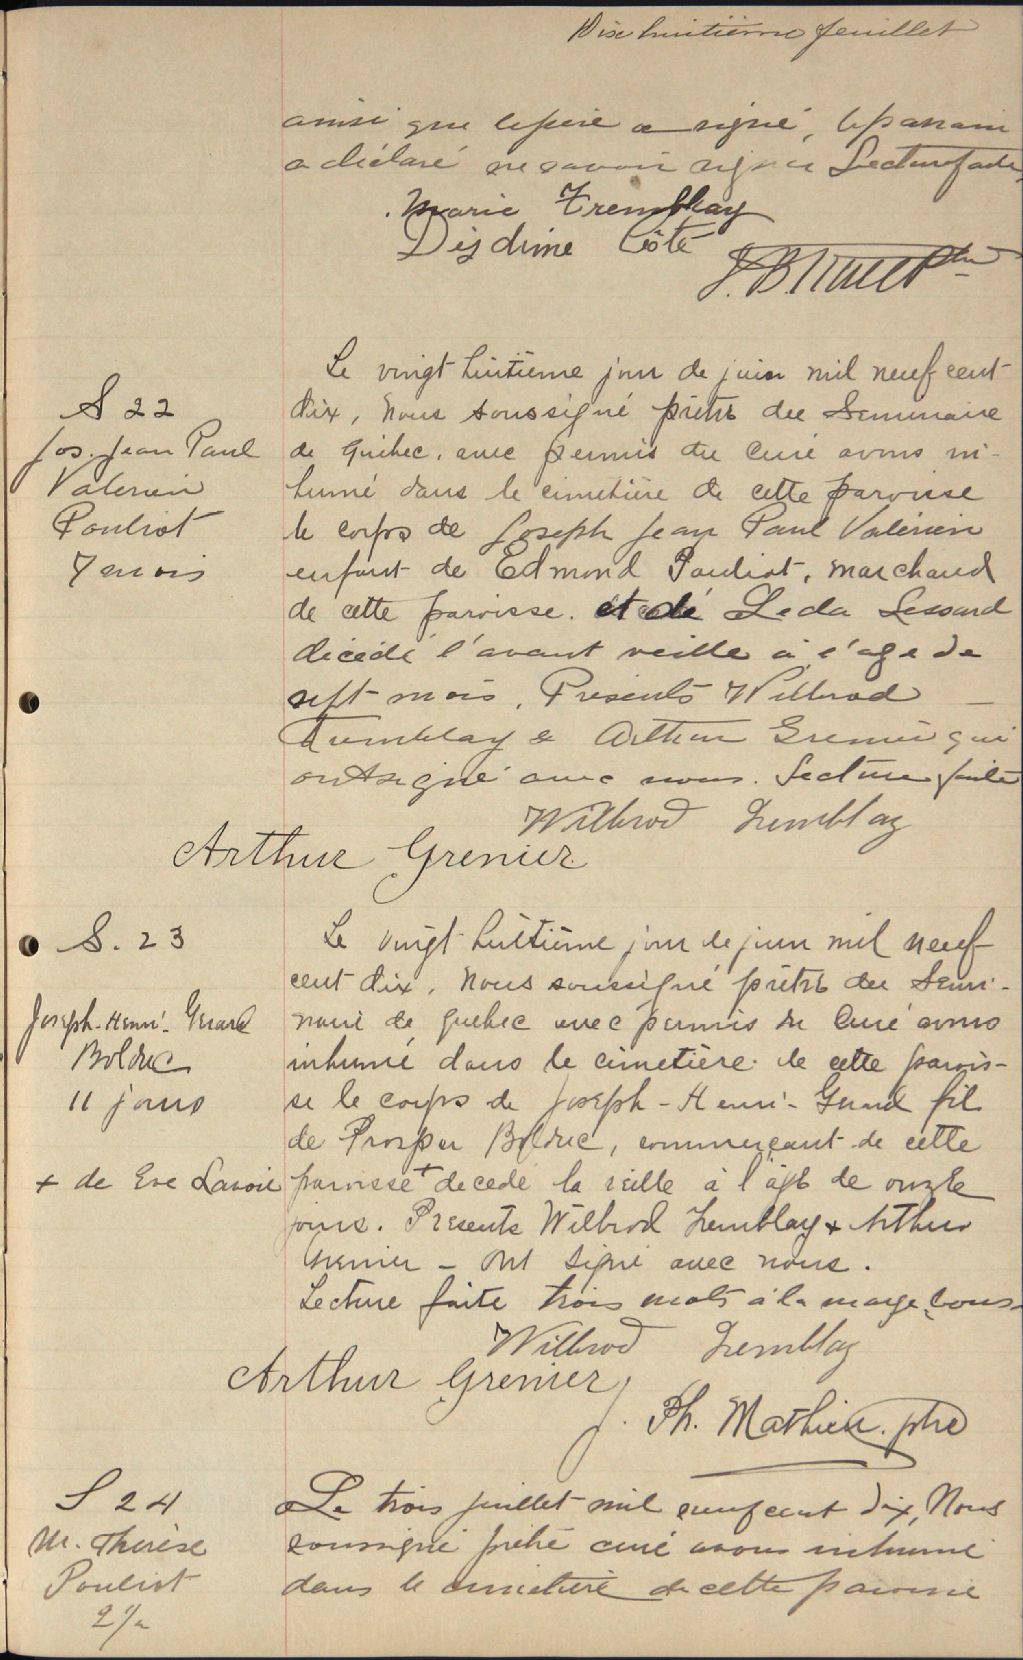 Dix huitième feuillet
ainsi que le père a signé, le parrain
a déclaré ne savoir signer Lecture faite
Marie Tremblay
Disdime Côté
Le vingt huitième jour de juin mil neuf cent
S 22
dix, Nous soussigné prêtre du Seminaire
Jos. Jean Paul
de Québec, avec permis du Curé avons in-
Valerien
humé dans le cimetière de cette paroisse
Pouliot
le corps de Joseph Jean Paul Valérien
7 mois
enfant de Edmond Pouliot, marchand
de cette paroisse. et de Leda Lessard
décédé l'avant veille à l'age de
sept mois. Présents Wilbrod
Tremblay & Arthur Grenier qui
ont signé avec nous. Lecture faite
Wilbrod Tremblay
Arthur Grenier
S. 23
Le vingt huitième jour de juin mil neuf
cent dix. Nous soussigné prêtre du Semi-
Joseph-Henri-Gerard
naire de Quebec avec permis du Curé avons
Bolduc
inhumé dans le cimetière de cette parois-
11 jours
se le corps de Joseph-Henri-Gerard fils
de Prosper Bolduc, commerçant de cette
+ de Eve Lavoie
paroisse + decedé la veille à l'âge de onze
jours. Presents Wilbrod Tremblay & Arthur
Grenier - ont signé avec nous.
Lecture faite trois mots à la marge bons
Wilbrod Tremblay
Arthur Grenier
Ph. Mathieu ptre
S 24
Le trois juillet mil neuf cent dix, Nous
M. Thérèse
soussigné prêtre curé avons inhumé
Pouliot
dans le cimetière de cette paroisse